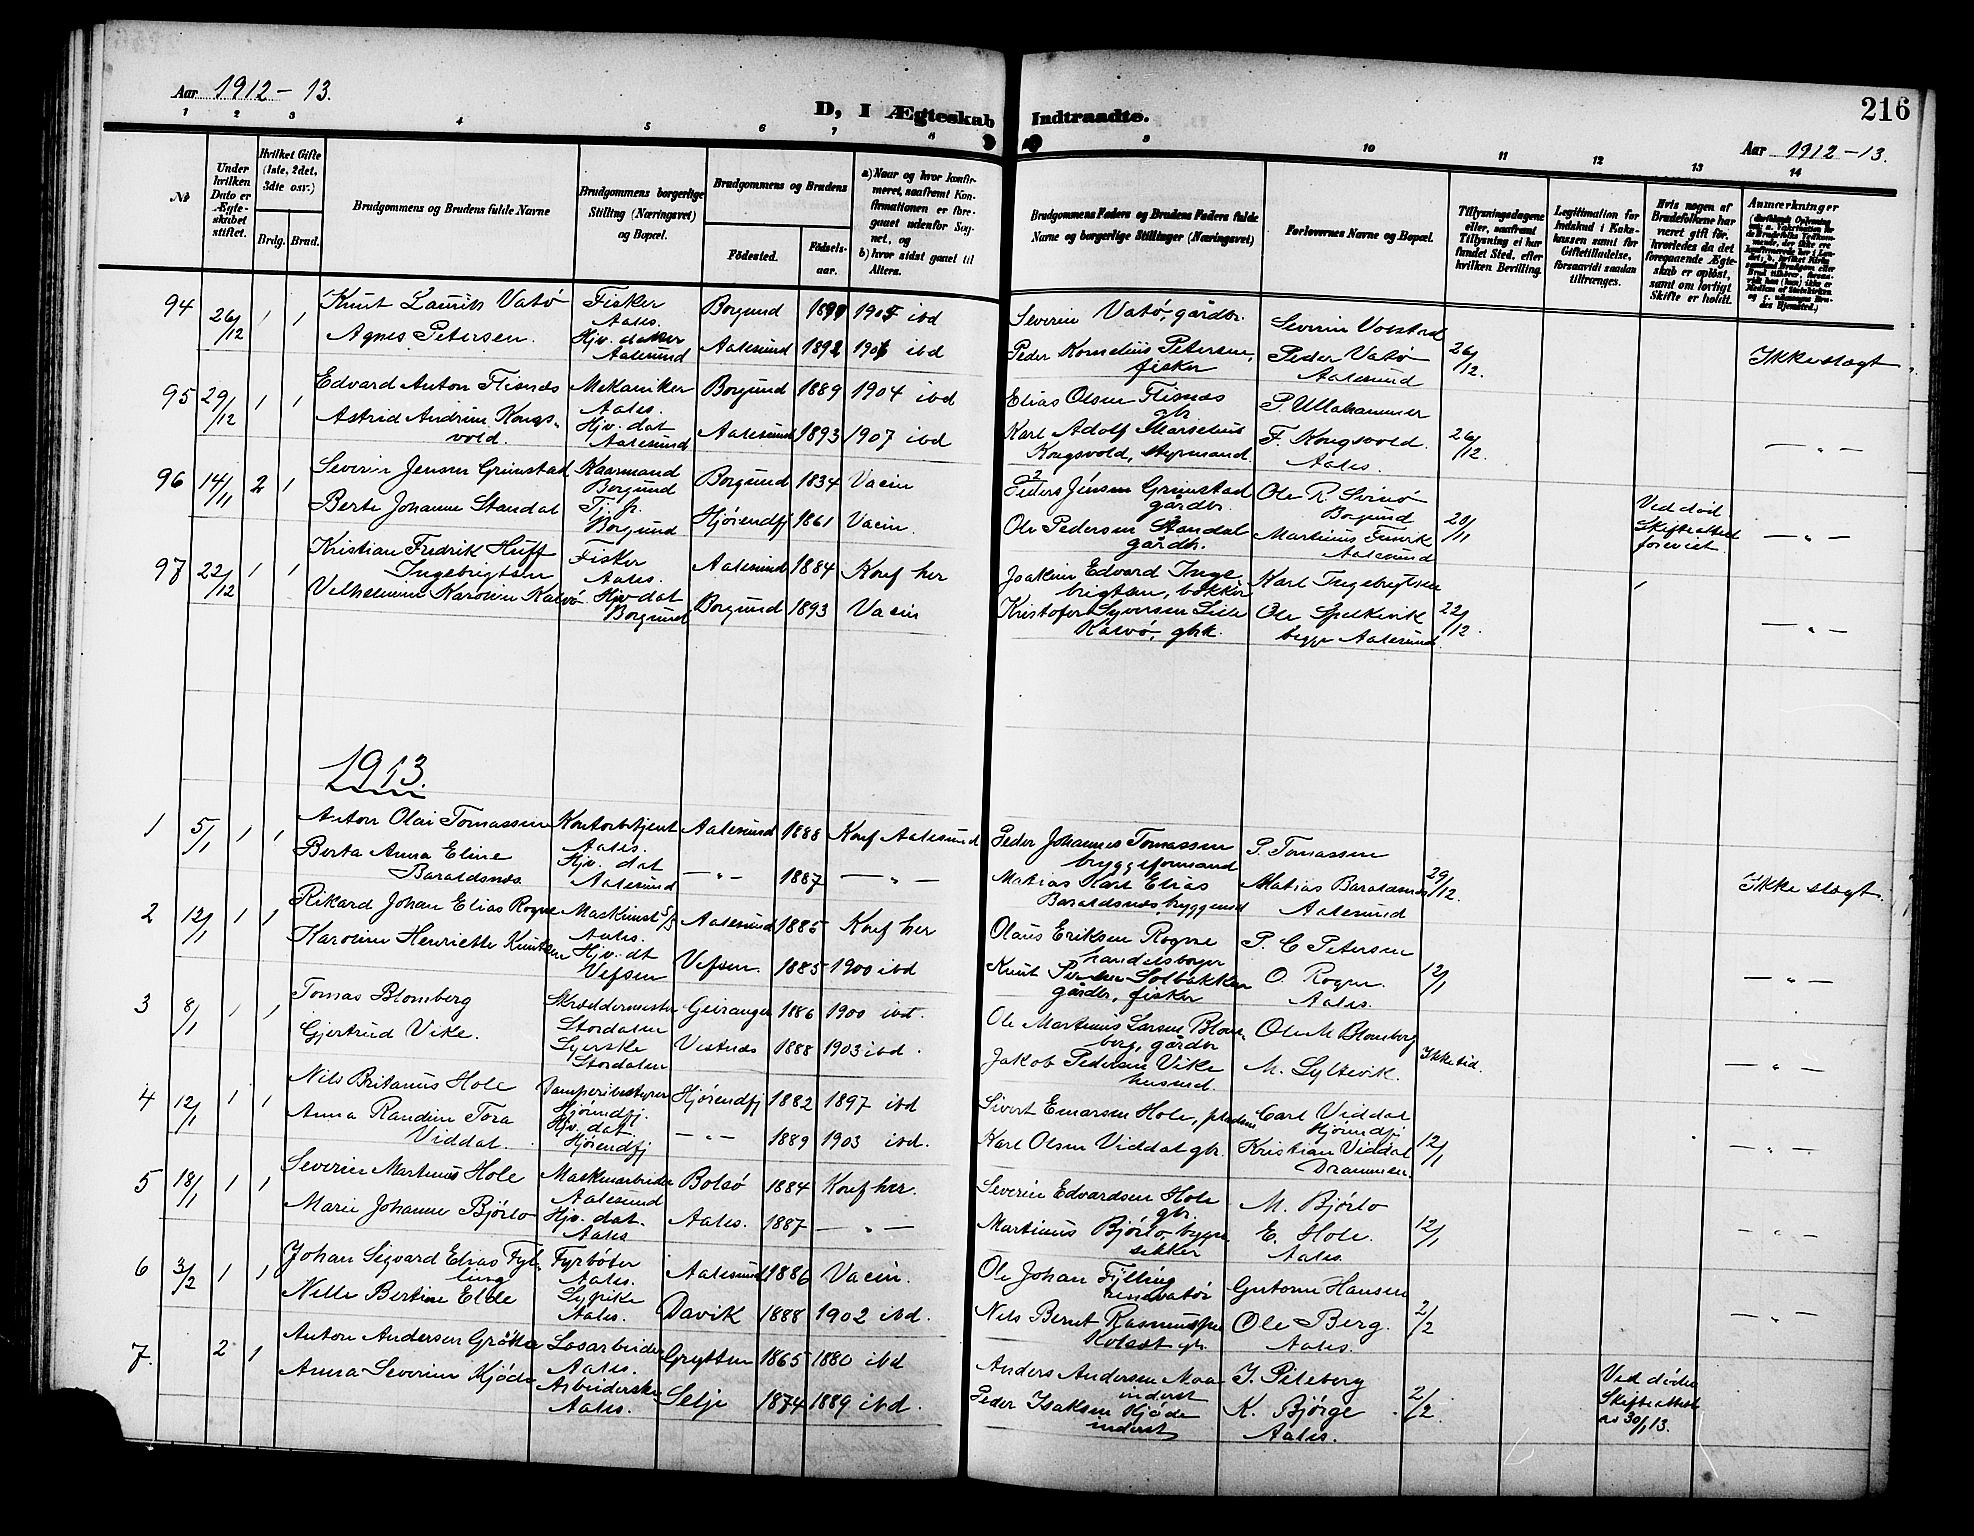 Aar 1912-13.
D, I Ægteskab Indtraadte.
216
Aar 1912-13.
1 2 3 4 5 6 7 8 9 10 11 12 13 14
No
Under hvilken Dato er Ægteskabet stiftet.
Hvilket Gifte (1ste, 2det, 3dte osv.)
Brdg. Brud.
Brudgommens og Brudens fulde Navne
Brudgommens borgerlige Stilling (Næringsvei) og Bopæl.
Brudgommens og Brudens
Fødested. Fødselsaar.
a) Naar og hvor konfirmeret, saafremt Konfirmationen er foregaaet udenfor Sognet, og
b) hvor sidst gaaet til Alters.
Brudgommens Faders og Brudens Faders fulde Navne og borgerlige Stillinger (Næringsvei)
Forlovernes Navne og Bopæl.
Tillysningsdagene eller, saafremt Tillysning ei har fundet Sted, efter hvilken Bevilling.
Legitimation for Indskud i Enkekassen samt for Giftetilladelse, forsaavidt saadan tiltrænges.
Hvis nogen af Brudefolkene har været gift før, hvorledes da det foregaaende Ægteskab er opløst, samt om lovligt Skifte er holdt.
Anmærkninger
94 26/12 1 1 Knut Laurits Vatø Fisker Aales. Borgund 1890 1905 ibd Severin Vatø, gårdbr. Severin Volstad
Agnes Petersen. Hjv. datter Aalesund Aalesund 1892 1906 ibd Peder Kornelius Petersen, fisker Peder Vatø Aalesund 26/12. Ikke slægt
95 29/12 1 1 Edvard Anton Flisnes Mekaniker Aales. Borgund 1889 1904 ibd Elias Olsen Flisnes gbr. P. Ullahammer
Astrid Andrine Kongsvold. Hjv. dat Aalesund Aalesund 1893 1907 ibd Karl Adolf Marselius Kongsvold, styrmand. F. Kongsvold. Aales. 26/12. — " —
96 14/11 2 1 Severin Jensen Grimstad Kaarmand Borgund Borgund 1834 Vacin Peders Jensen Grimstad gårdbr. Ole R. Svinø Borgund
Berte Johanne Standal Tj. p. Borgund Hjørendfj 1861 Vacin. Ole Pedersen Standal gårdbr. Martinus Furvik Aalesund 20/11 Ved død Skifteattest forevist. — " —
97 22/12 1 1 Kristian Fredrik Huff Ingebrigtsen Fisker Aales. Aalesund 1884 Konf her Joakim Edvard Ingebrigtsen, bøkker Karl Ingebrigtsen
Vilhelmine Karoline Kalvø Hjv dat Borgund Borgund 1893 Vacin Kristofer Syversen Lille Kalvø, gbr. Ole Spelkevik begge Aalesund. 22/12. — " —
1913.
1 5/1 1 1 Anton Olai Tomassen Kontorbetjent Aales. Aalesund 1888 Konf Aalesund Peder Johannes Tomassen bryggeformand P. Tomassen
Berta Anna Eline Baraldsnes Hjv. dat Aalesund — " — 1887 — " — Matias Karl Elias Baraldsnes, byggmd Matias Baraldsnes Aalesund 29/12. Ikke slægt.
2 12/1 1 1 Rikard Johan Elias Rogne Maskinist S/S Aales. Aalesund 1885 Konf her Olaus Eriksen Rogne handelsborger P. C. Petersen
Karoline Henriette Knutsen Hjv. dt Vefsen Vefsen. 1885 1900 ibd Knut Solbakken gårdbr, fisker O. Rogne. Aales. 12/1 — " —
3 8/1 1 1 Tomas Blomberg Skræddermester Stordalen Geiranger 1886 1900 ibd. Ole Martinus Larsen Blomberg, gårdbr Ole M Blomberg
Gjertrud Vike. Syerske Stordalen Vestnes 1888 1903 ibd. Jakob Pedersen Vike husmd. M. Syltevik. Ikke tid. — " —
4 12/1 1 1 Nils Britanus Hole Damperibestyrer Hjørundfj. Hjørendfj 1882 1897 ibd Sivert Einarsen Hole, Carl Viddal Hjørundfj
Anna Randine Tora Viddal. Hjv. dat Hjørendfj — " — 1889 1903 ibd. Karl Olsen Viddal gbr. Kristian Viddal Drammen. 12/1 — " —
5 18/1 1 1 Severin Martinus Hole Maskinarbeider Aalesund Bolsø 1884 Konf her. Severin Edvardsen Hole, gbr. M. Bjørlo
Marie Johanne Bjørlo Hjv. dat. Aales Aales. 1887 — " — Martinus Bjørlo bygge sikker E. Hole. Aales. 12/1 — " —
6 3/2 1 1 Johan Sigvard Elias Fylling Fyrbøter Aales. Aalesund 1886 Vacin. Ole Johan Fylling renovatør Gustorm Hansen
Nille Bertine Elde Sypike Aales. Davik 1888 1902 ibd. Nils Bernt Rasmussen gbr. Ole Berg. Aales. 2/2 — " —
7. 2 1 Anton Andersen Grøtta Løsarbeider Aales. Grytten 1865 1880 ibd Anders Andersen Moa inderst J. Pileberg
Anna Severine Kjøde Arbeiderske Aales. Selje 1874 1889 ibd. Peder Isaksen Kjøde inderst K. Bjørge Aales. 2/2. Ved døden Skifteattest as 30/1 13.